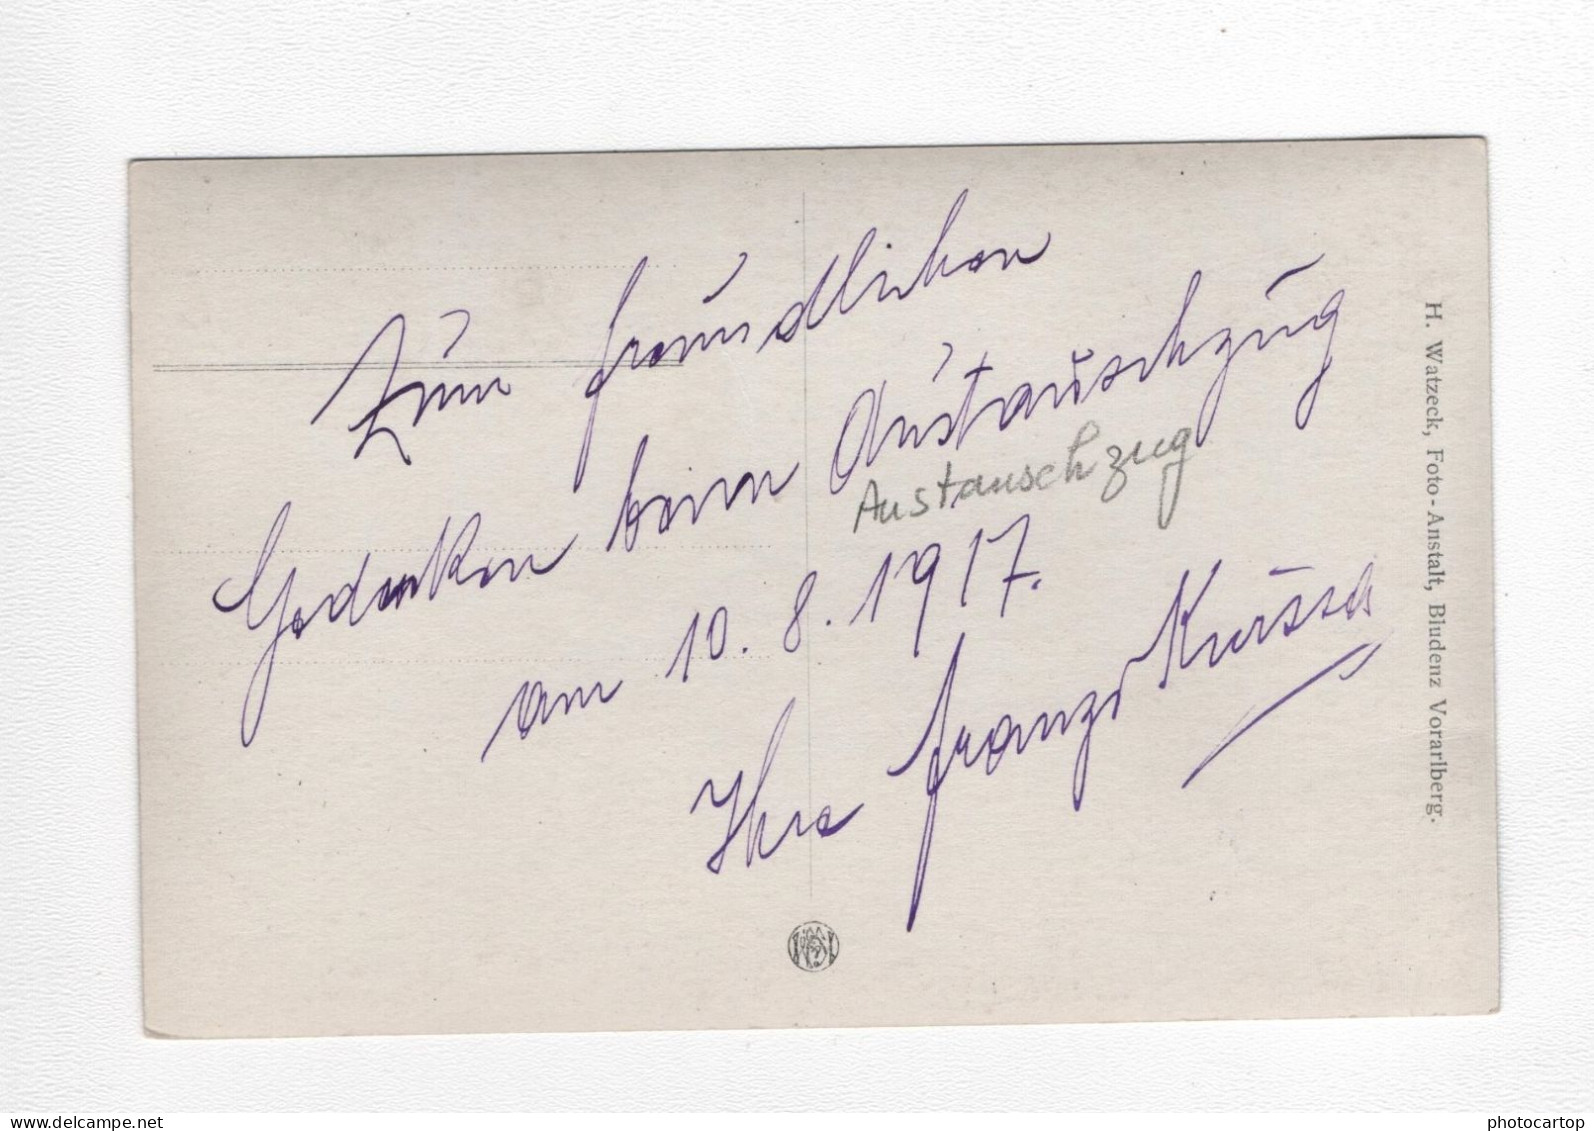 Zum freundlichen
Gedenken beim Austauschzug
Austauschzug
am 10. 8. 1917.
Ihre Franzi
H. Watzeck, Foto-Anstalt, Bludenz Vorarlberg.
www.delcampe.net
photocartop